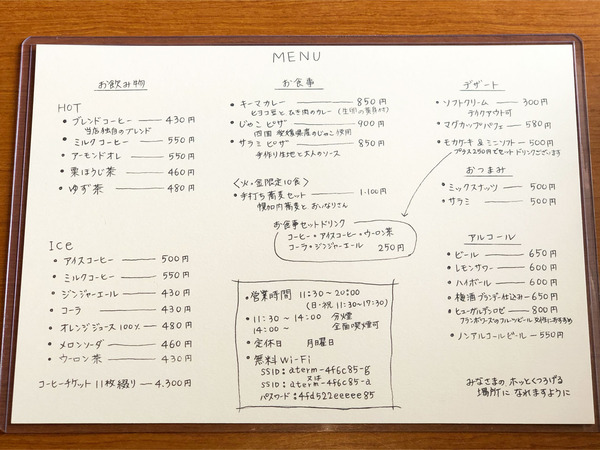 MENU
お飲み物
HOT
・ブレンドコーヒー ── 430円
当店独自のブレンド
・ミルクコーヒー ── 550円
・アーモンドオレ ── 550円
・栗ほうじ茶 ── 460円
・ゆず茶 ── 480円
Ice
・アイスコーヒー ── 500円
・ミルクコーヒー ── 550円
・ジンジャーエール ── 430円
・コーラ ── 430円
・オレンジジュース100% ── 480円
・メロンソーダ ── 460円
・ウーロン茶 ── 430円
コーヒーチケット 11枚綴り ─ 4.300円
お食事
・キーマカレー ── 850円
ヒヨコ豆とひき肉のカレー
・じゃこピザ ── 900円
四国 愛媛県産のじゃこ使用
・サラミピザ ── 850円
手作り生地と大人のソース
〈火・金限定10食〉
・手打ち蕎麦セット ── 1.100円
幌加内蕎麦と おいなりさん
お食事セットドリンク
コーヒー・アイスコーヒー・ウーロン茶
コーラ・ジンジャーエール 250円
・営業時間 11:30〜20:00
(日・祝 11:30〜17:30)
・11:30〜14:00 分煙
14:00〜 全面喫煙可
・定休日 月曜日
・無料Wi-Fi
SSID:aterm-4f6c85-g
又は
SSID:aterm-4f6c85-a
パスワード:4fd522eeeee85
デザート
・ソフトクリーム ── 300円
テイクアウト可
・マグカップパフェ ─ 580円
・モカケーキ & ミニソフト ─ 500円
プラス250円でセットドリンクございます
おつまみ
・ミックスナッツ ─ 500円
・サラミ ── 500円
アルコール
・ビール ── 650円
・レモンサワー ── 600円
・ハイボール ── 600円
・梅酒ブランデー仕込み ─ 650円
・ヒューガルデンロゼ ── 800円
フランボワーズのフルーツビール 女性におすすめ
・ノンアルコールビール ─ 550円
みなさまの ホッとくつろげる
場所に なれますように